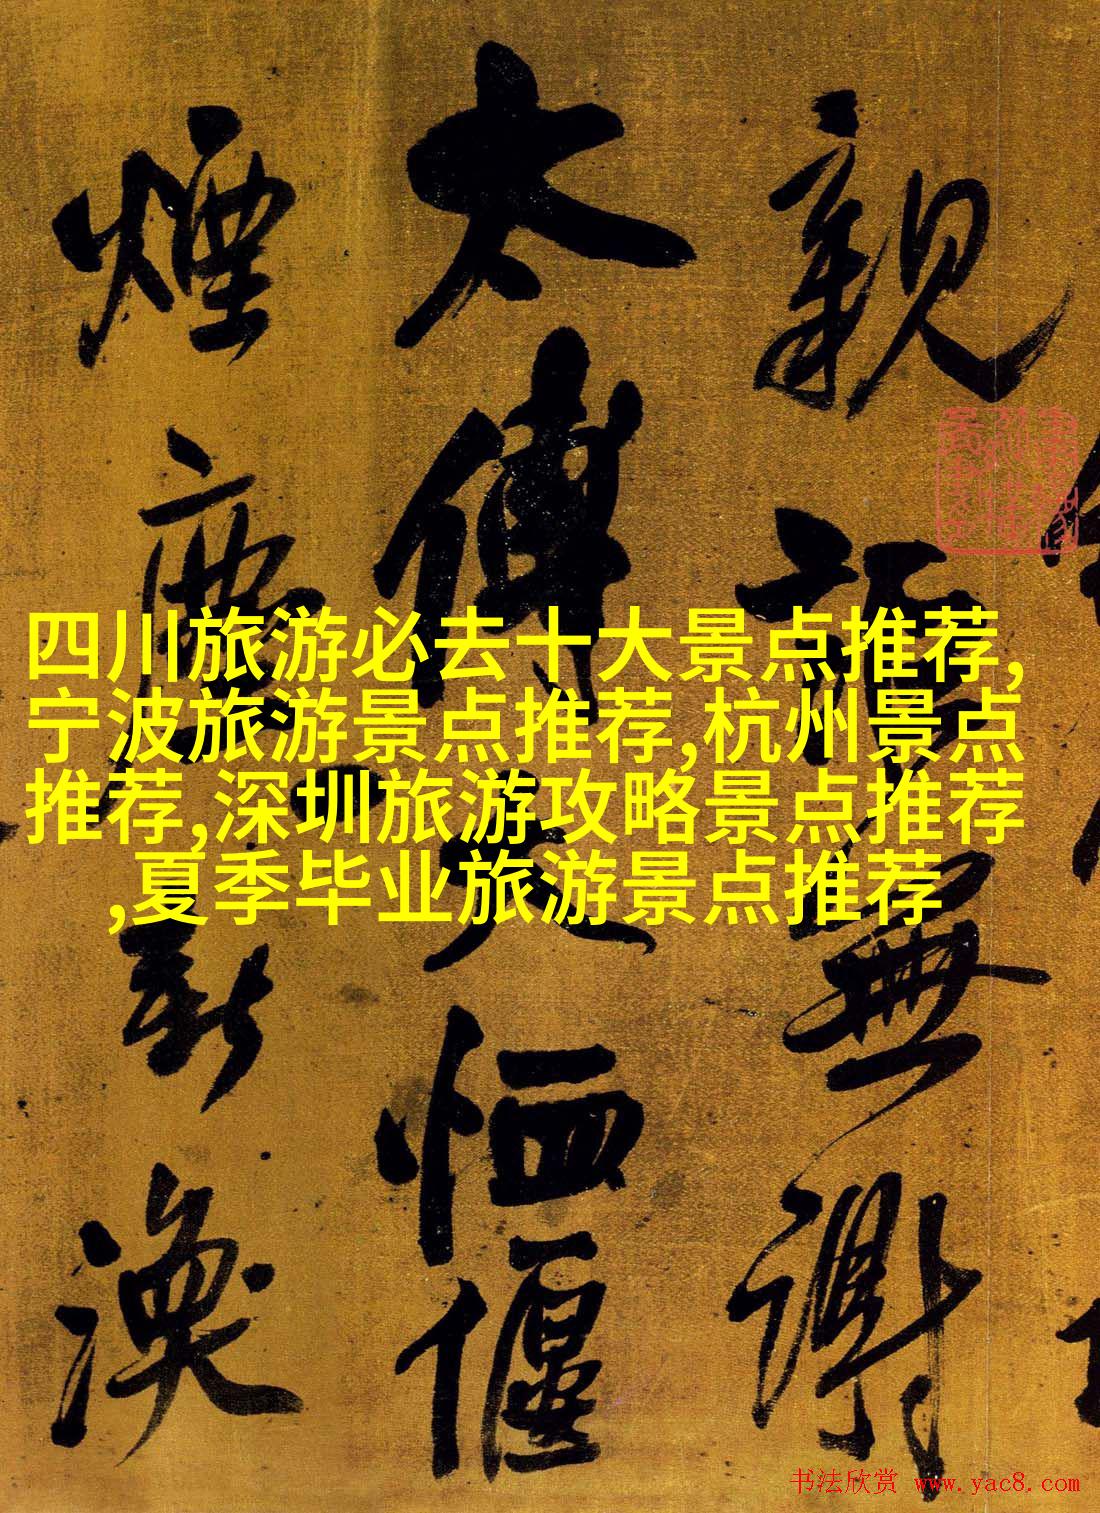 四川旅游必去十大景点推荐,
宁波旅游景点推荐,杭州景点
推荐,深圳旅游攻略景点推荐
,夏季毕业旅游景点推荐
親無謝
太傅恤偃
煙塵渙
书法欣赏 www.yac8.com